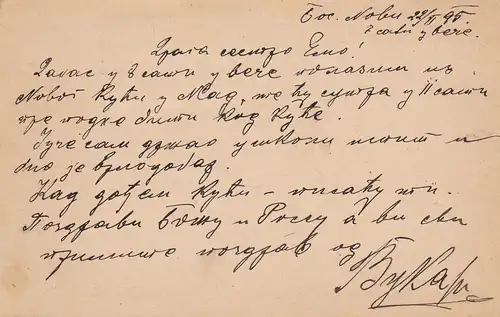 Бос. Нови 22/II 95.
8 сати у вече.
Драга сестро Емо!
Данас у 8 сати у вече полазим из
Новог кући у Мад, те ћу сутра у 11 сати
пре подне бити код куће.
Јуче сам држао у школи испит и
био је врло добар.
Кад дођем кући - писаћу ти.
Поздрави Божу и Росу а ви сви
примите поздрав од